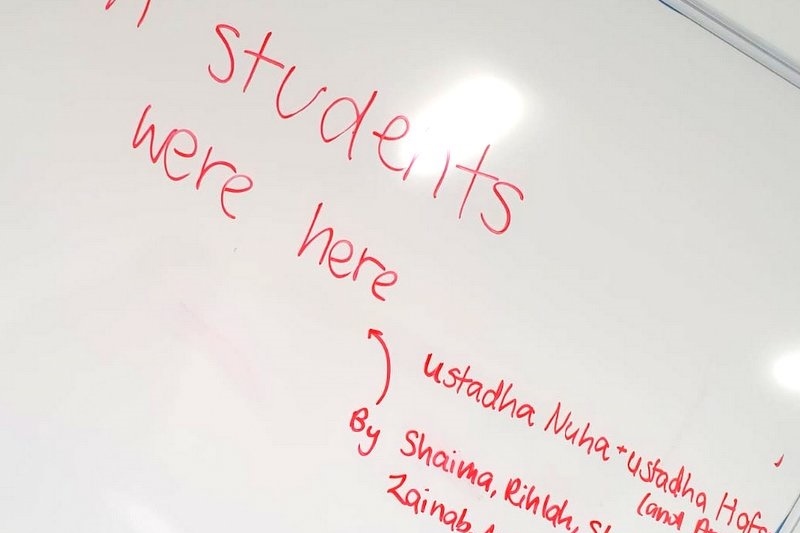 students
were here
ustadha Nuha + ustadha
(and
By Shaima, Rihlah,
Zainab